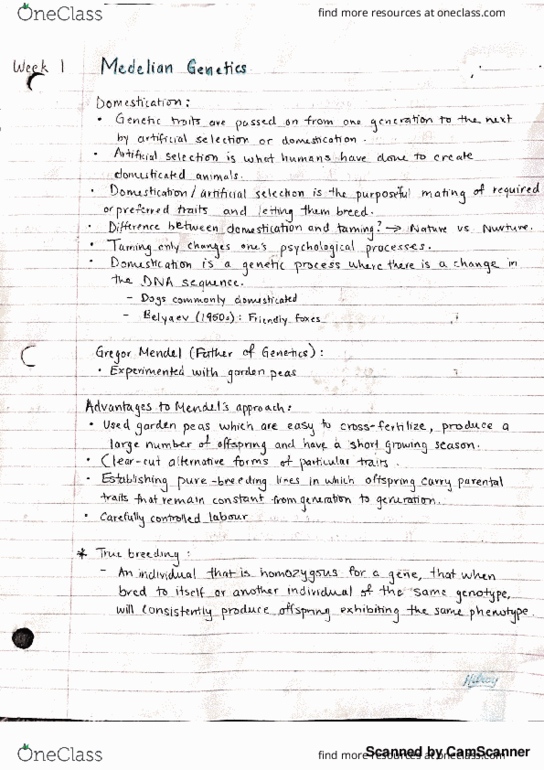 OneClass
find more resources at oneclass.com
Week 1
Medelian Genetics
Domestication:
• Genetic traits are passed on from one generation to the next
by artificial selection or domestication.
• Artificial selection is what humans have done to create
domesticated animals.
• Domestication/artificial selection is the purposful mating of required
or preferred traits and letting them breed.
• Difference between domestication and taming? → Nature vs. Nurture.
• Taming only changes one's psychological processes.
• Domestication is a genetic process where there is a change in
the DNA sequence.
- Dogs commonly domesticated
- Belyaev (1950s): Friendly foxes
Gregor Mendel (Father of Genetics):
• Experimented with garden peas
Advantages to Mendel's approach:
• Used garden peas which are easy to cross-fertilize, produce a
large number of offspring and have a short growing season.
• Clear-cut alternative forms of particular traits.
• Establishing pure-breeding lines in which offspring carry parental
traits that remain constant from generation to generation.
• Carefully controlled labour
* True breeding:
- An individual that is homozygous for a gene, that when
bred to itself or another individual of the same genotype,
will consistently produce offspring exhibiting the same phenotype.
Hilroy
OneClass
find more resources at oneclass.com
Scanned by CamScanner